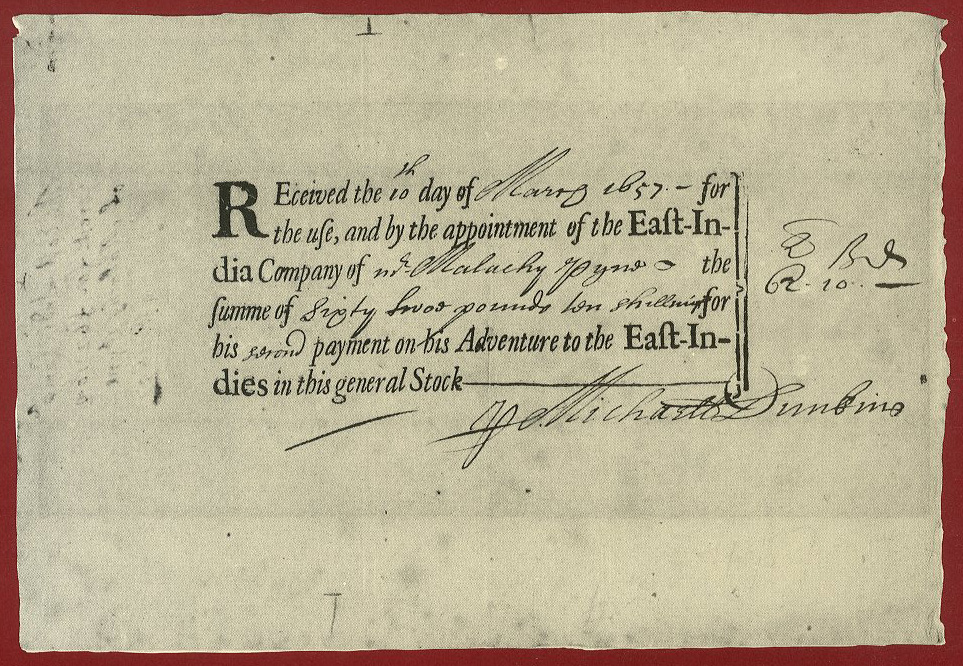 REceived the 10th day of March 1657. – for
the uſe, and by the appointment of the Eaſt-In-
dia Company of mr. Malachy Pyne – the
ſumme of Sixty twoe pounds ten shillings for
his second payment on his Adventure to the Eaſt-In-
dies in this general Stock
62. 10. –
Michael Dunkins